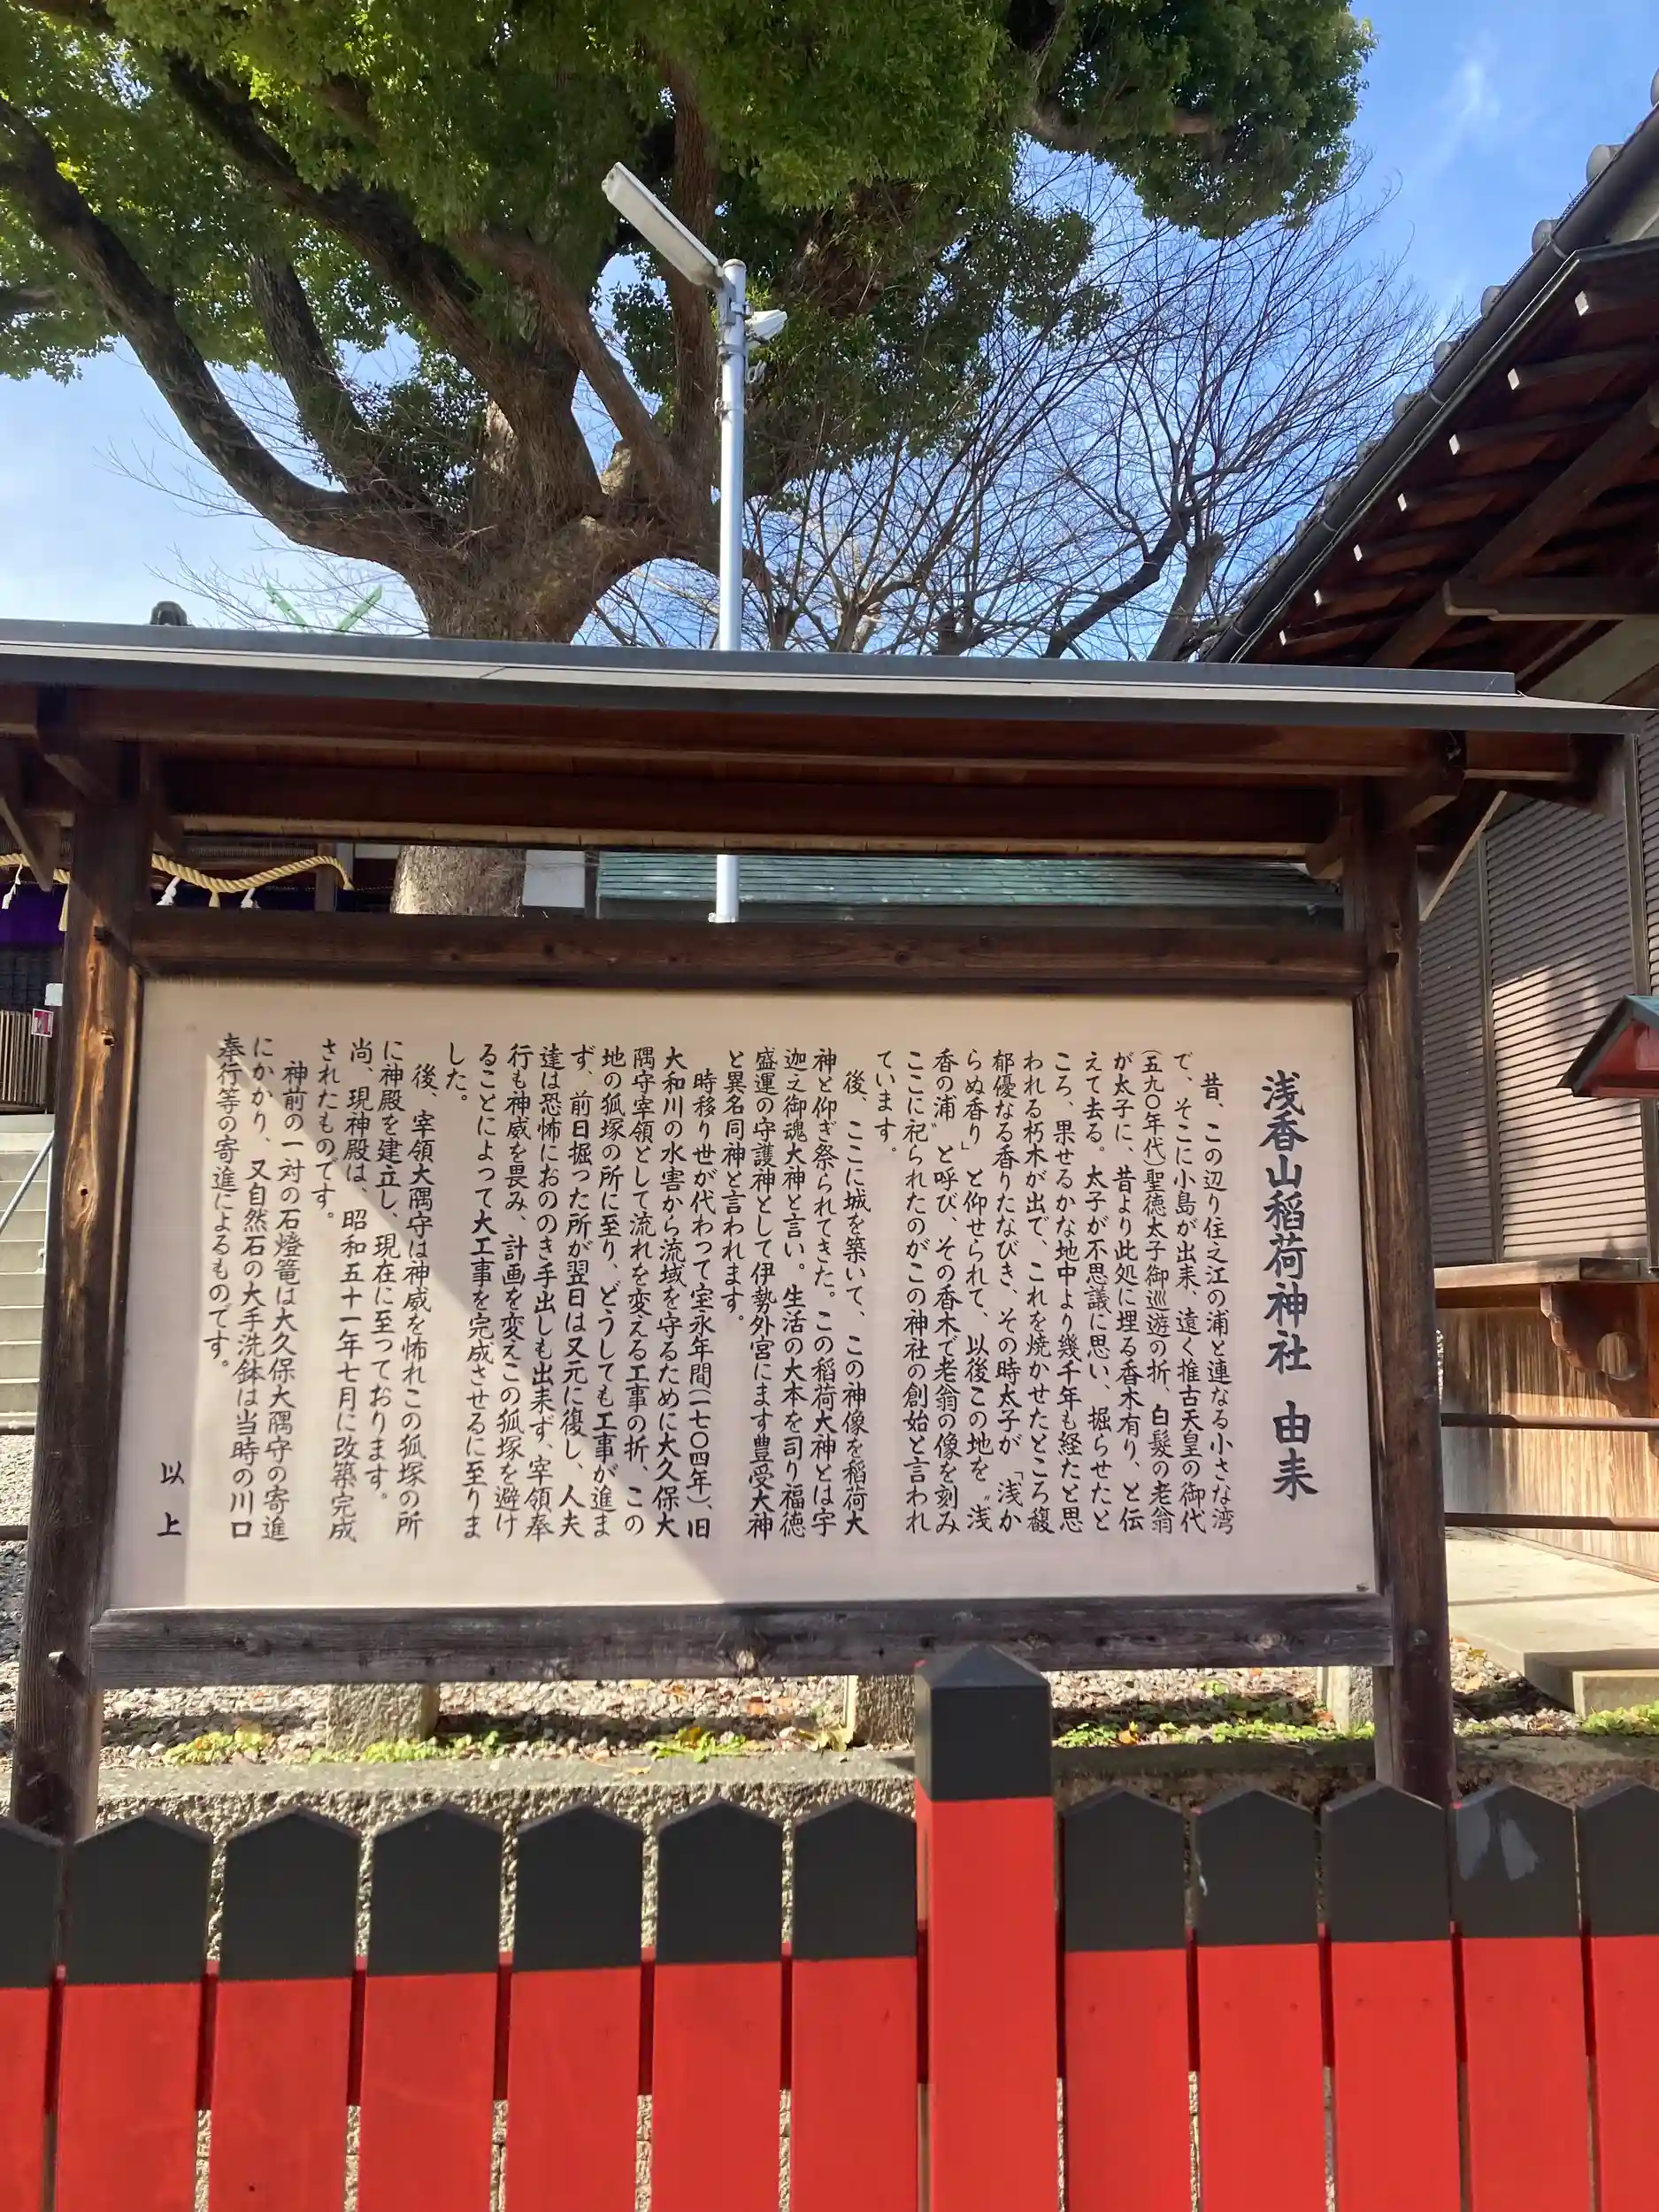 浅香山稲荷神社　由来
昔、この辺り住之江の浦と連なる小さな湾
で、そこに小島が出来、遠く推古天皇の御代
(五九〇年代)聖徳太子御巡遊の折、白髪の老翁
が太子に、昔より此処に埋る香木有り、と伝
えて去る。太子が不思議に思い、掘らせたと
ころ、果せるかな地中より幾千年も経たと思
われる朽木が出で、これを焼かせたところ馥
郁優なる香りたなびき、その時太子が「浅か
らぬ香り」と仰せられて、以後この地を〝浅
香の浦〟と呼び、その香木で老翁の像を刻み
ここに祀られたのがこの神社の創始と言われ
ています。
後、ここに城を築いて、この神像を稲荷大
神と仰ぎ祭られてきた。この稲荷大神とは宇
迦之御魂大神と言い。生活の大本を司り福徳
盛運の守護神として伊勢外宮にます豊受大神
と異名同神と言われます。
時移り世が代わって宝永年間(一七〇四年)、旧
大和川の水害から流域を守るために大久保大
隅守宰領として流れを変える工事の折、この
地の狐塚の所に至り、どうしても工事が進ま
ず、前日掘った所が翌日は又元に復し、人夫
達は恐怖におののき手出しも出来ず、宰領奉
行も神威を畏み、計画を変えこの狐塚を避け
ることによって大工事を完成させるに至りま
した。
後、宰領大隅守は神威を怖れこの狐塚の所
に神殿を建立し、現在に至つております。
尚、現神殿は、昭和五十一年七月に改築完成
されたものです。
神前の一対の石燈篭は大久保大隅守の寄進
にかかり、又自然石の大手洗鉢は当時の川口
奉行等の寄進によるものです。
以上